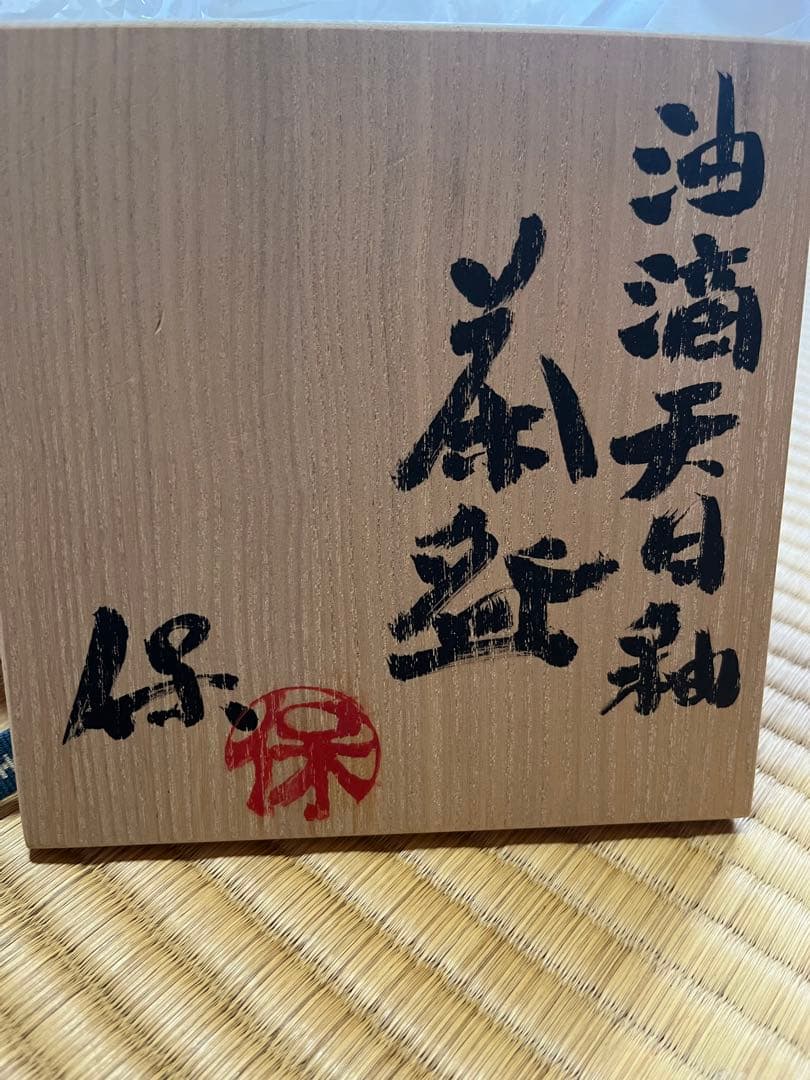 油滴天目釉
茶盌
保
保